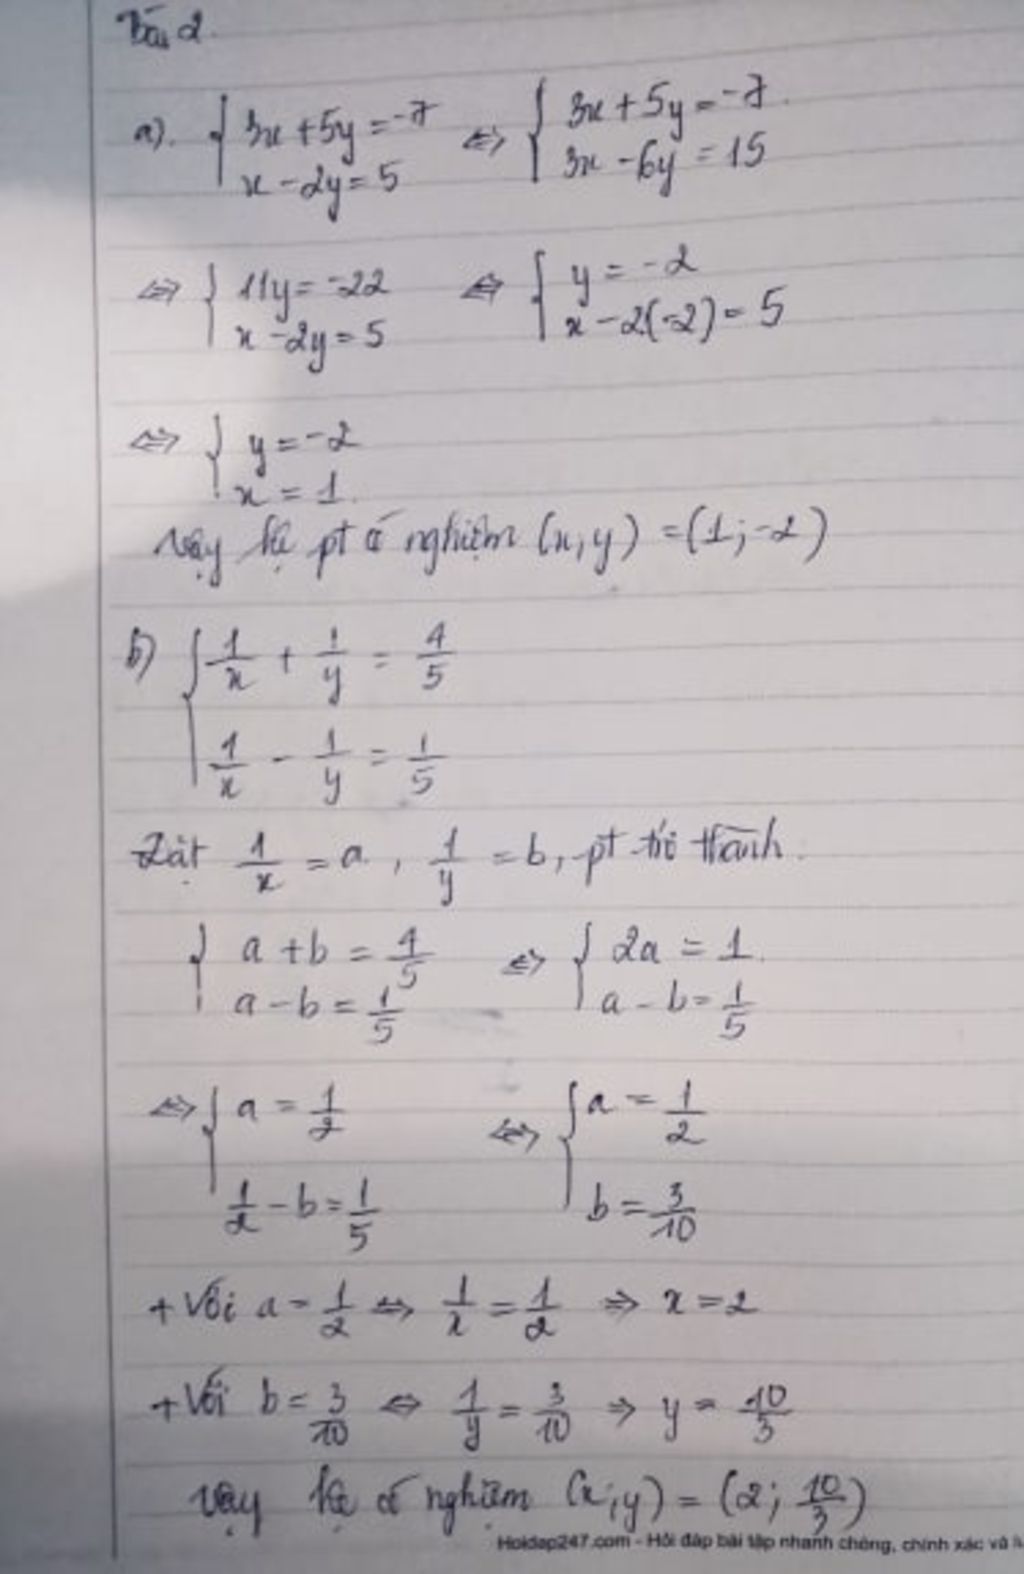 Bài 2.
a). { 3x + 5y = -7 ⇔ { 3x + 5y = -7.
x - 2y = 5 3x - 6y = 15
⇔ { 11y = -22 ⇔ { y = -2
x - 2y = 5 x - 2(-2) = 5
⇔ { y = -2
x = 1.
Vậy hệ pt có nghiệm (x, y) = (1; -2)
b) { 1/x + 1/y = 4/5
1/x - 1/y = 1/5
Đặt 1/x = a, 1/y = b, pt trở thành.
{ a + b = 4/5 ⇔ { 2a = 1.
a - b = 1/5 a - b = 1/5
⇔ { a = 1/2 ⇔ { a = 1/2
1/2 - b = 1/5 b = 3/10
+ Với a = 1/2 ⇔ 1/x = 1/2 ⇒ x = 2
+ Với b = 3/10 ⇔ 1/y = 3/10 ⇒ y = 10/3
Vậy hệ có nghiệm (x; y) = (2; 10/3)
Hoidap247.com - Hỏi đáp bài tập nhanh chóng, chính xác và